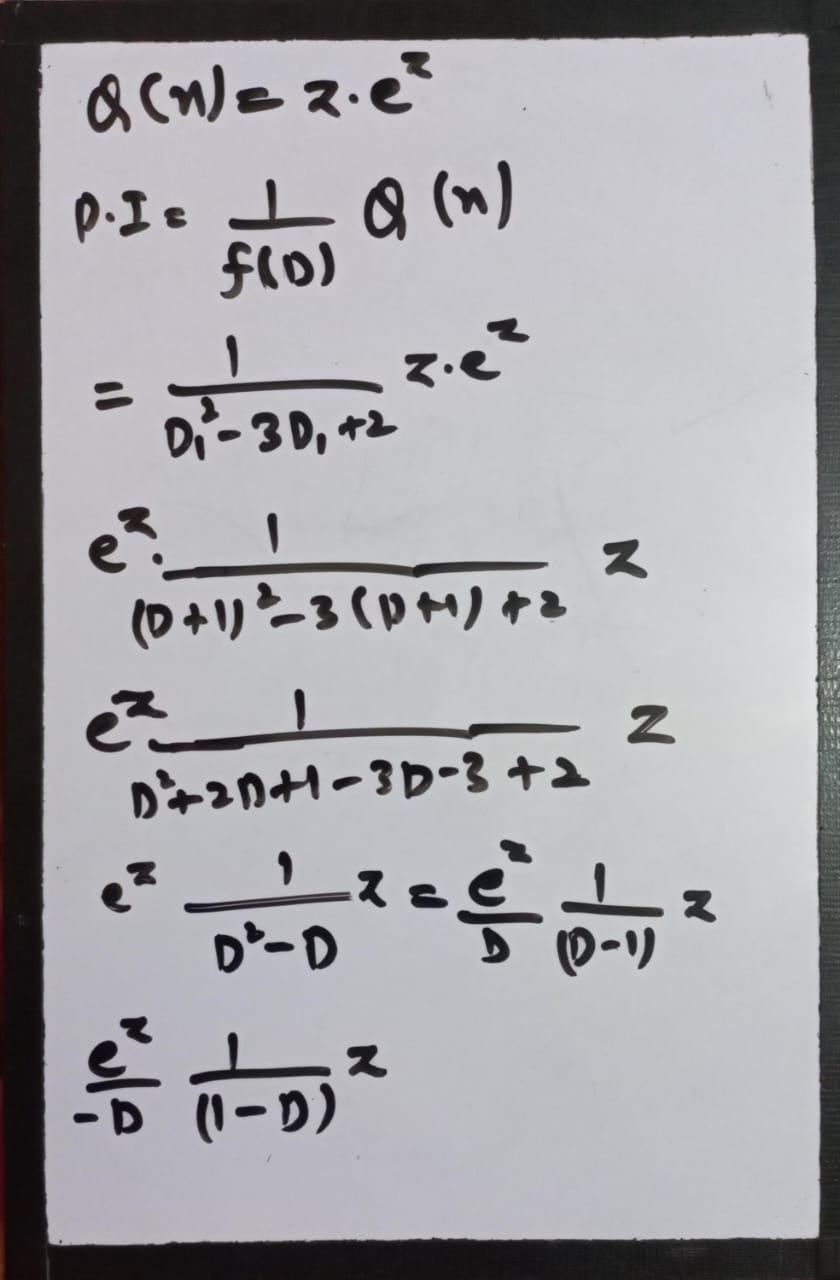 Q(n) = z·e^z
P.I = 1/f(D) Q(n)
= 1/(D₁² - 3D₁ + 2) z·e^z
e^z · 1/((D+1)² - 3(D+1) + 2) z
e^z · 1/(D² + 2D + 1 - 3D - 3 + 2) z
e^z 1/(D² - D) z = e^z/D 1/(D-1) z
e^z/-D 1/(1-D) z